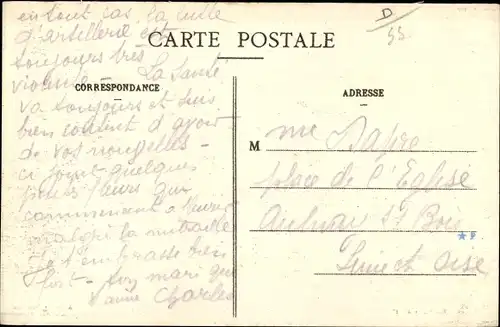 en tout cas la lutte
d'artillerie est
toujours très
violente - La Santé
va toujours et suis
bien content d'avoir
de vos nouvelles -
ci joint quelques
fleurs qui
commencent à fleurir
malgré la mitraille
Je t'embrasse bien
fort - ton mari qui
t'aime Charles
D
55
CARTE POSTALE
CORRESPONDANCE
ADRESSE
M me Dapre
place de l'Eglise
Aulnay s/s Bois
Seine et Oise